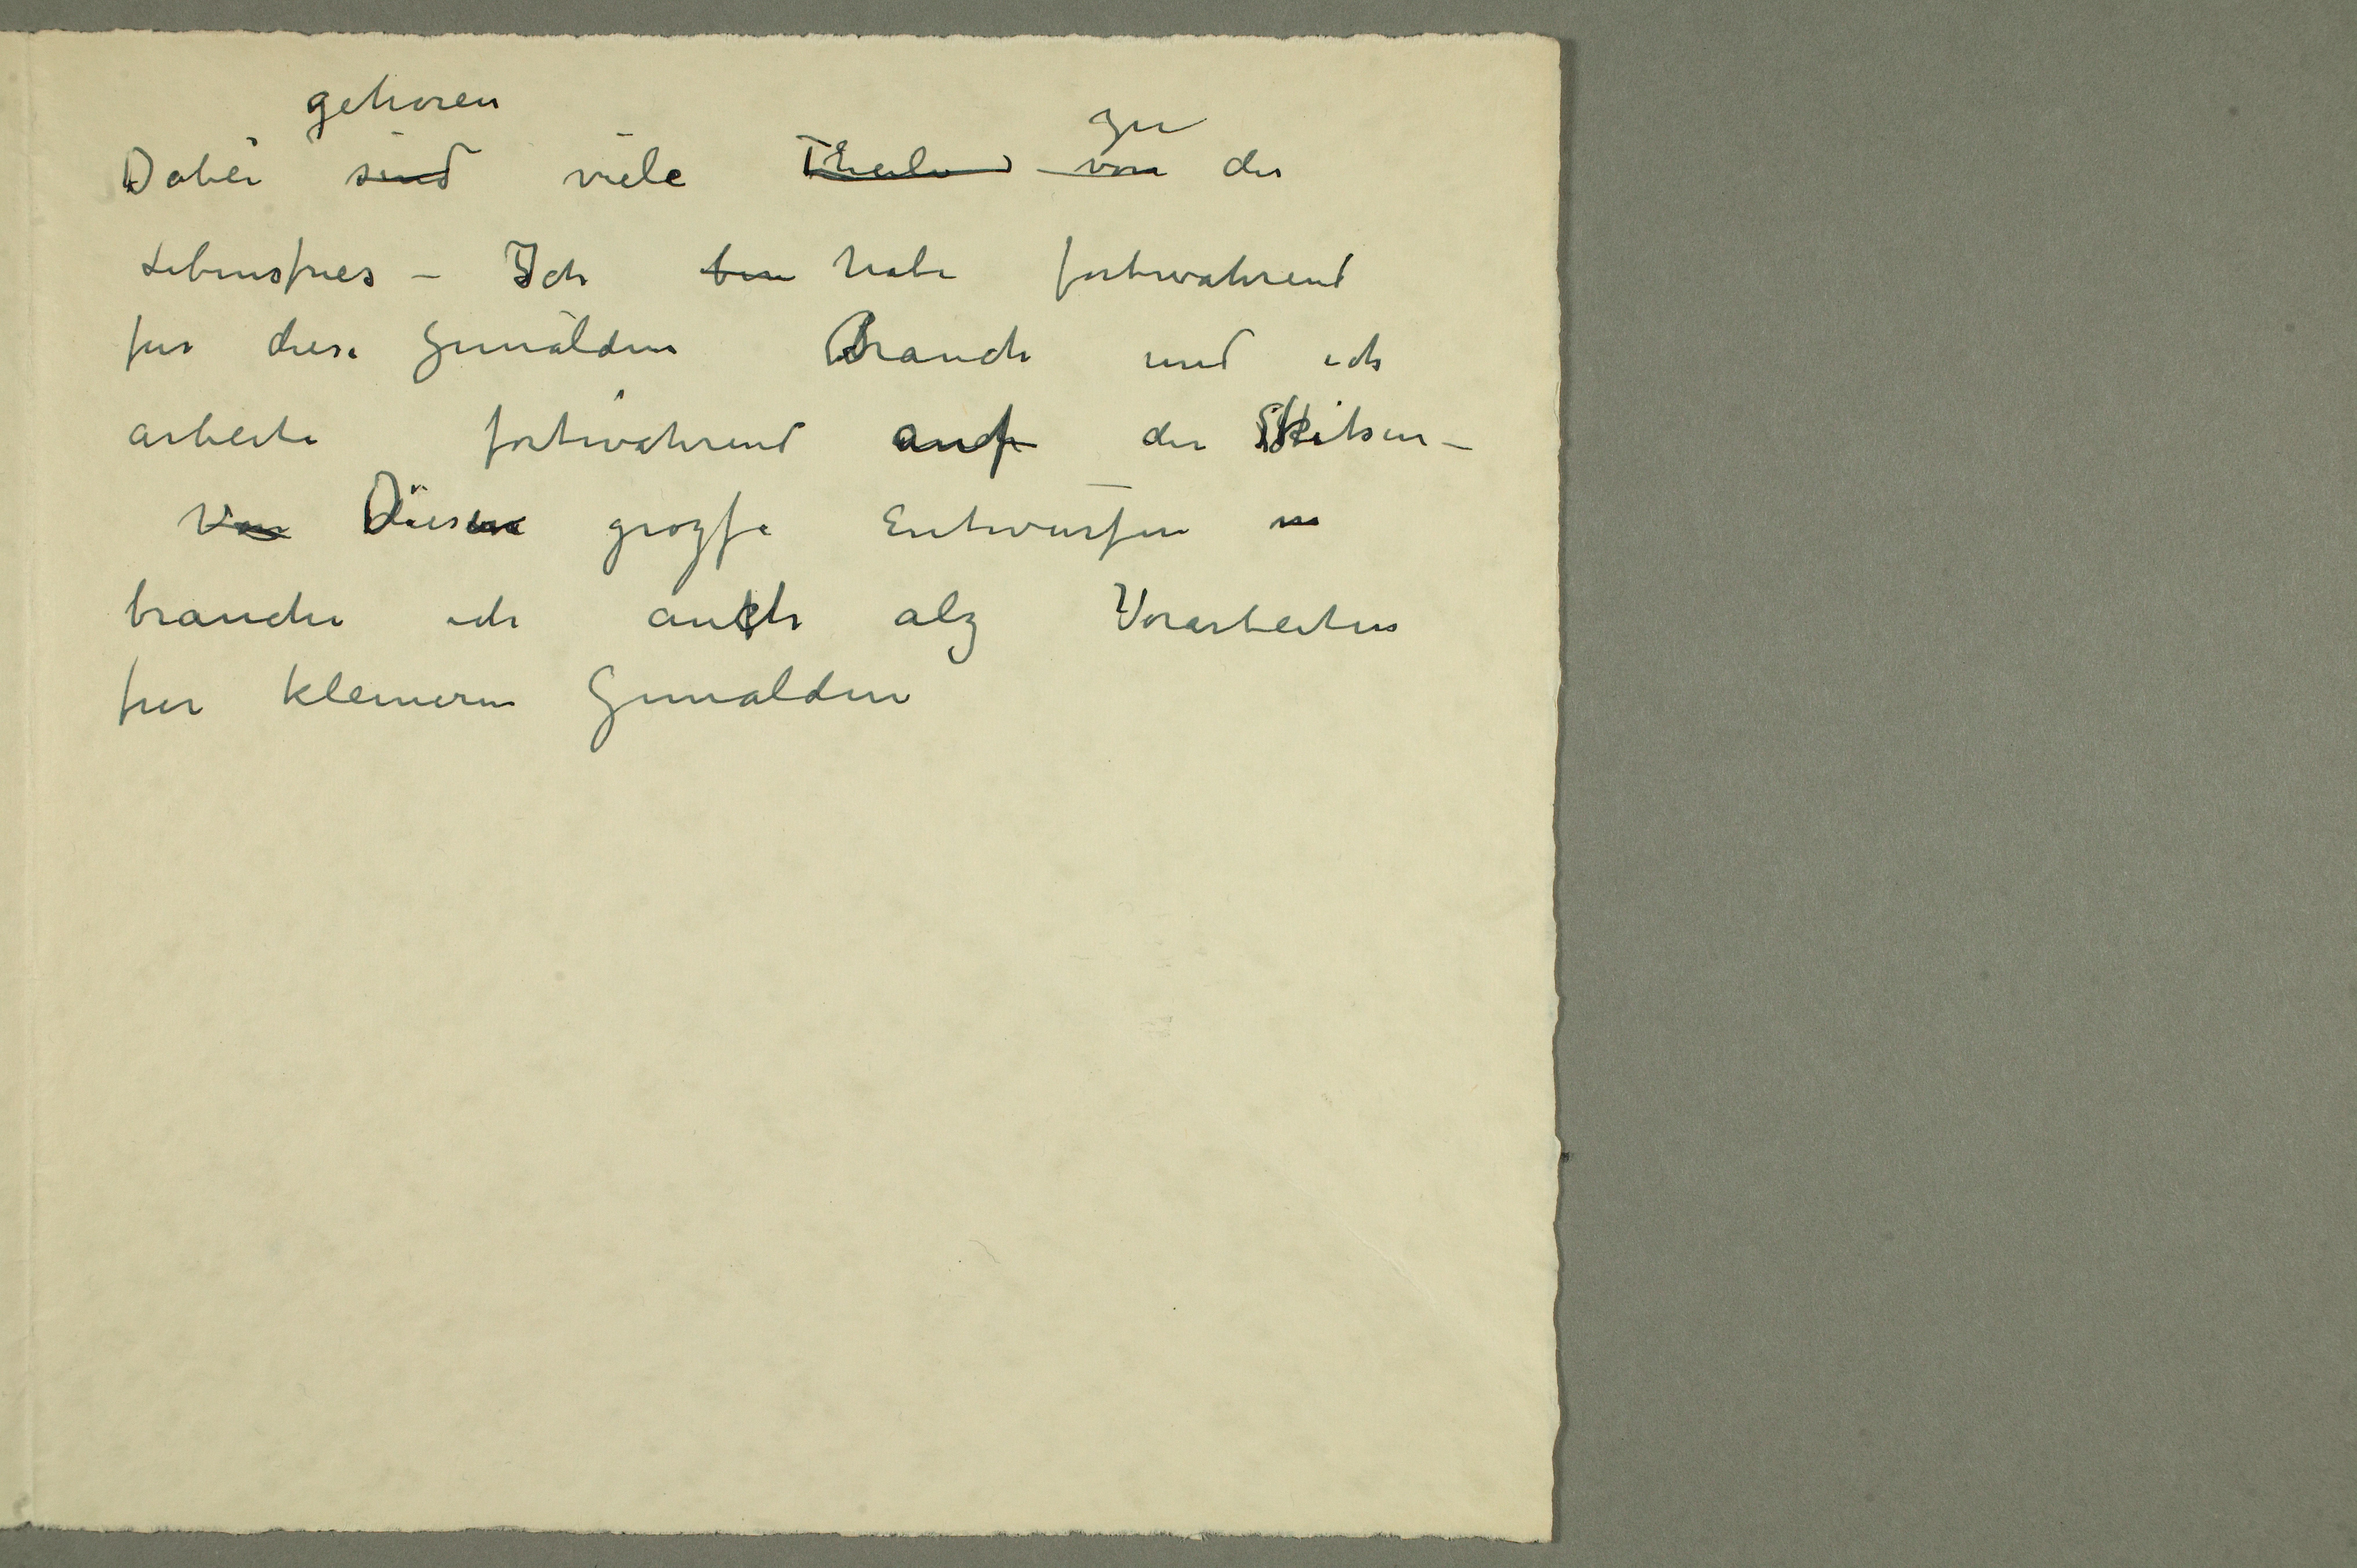 gehoren
zu
Dabei sind viele Theile von der
Lebensfries – Ich bin habe fortwahrend
fur diese Gemälden Brauch und ich
arbeite fortwährend auf der Skitsen –
Von Diesen grozse Entwurfen
brauche ich auch alz Vorarbeiten
fur kleineren Gemalden